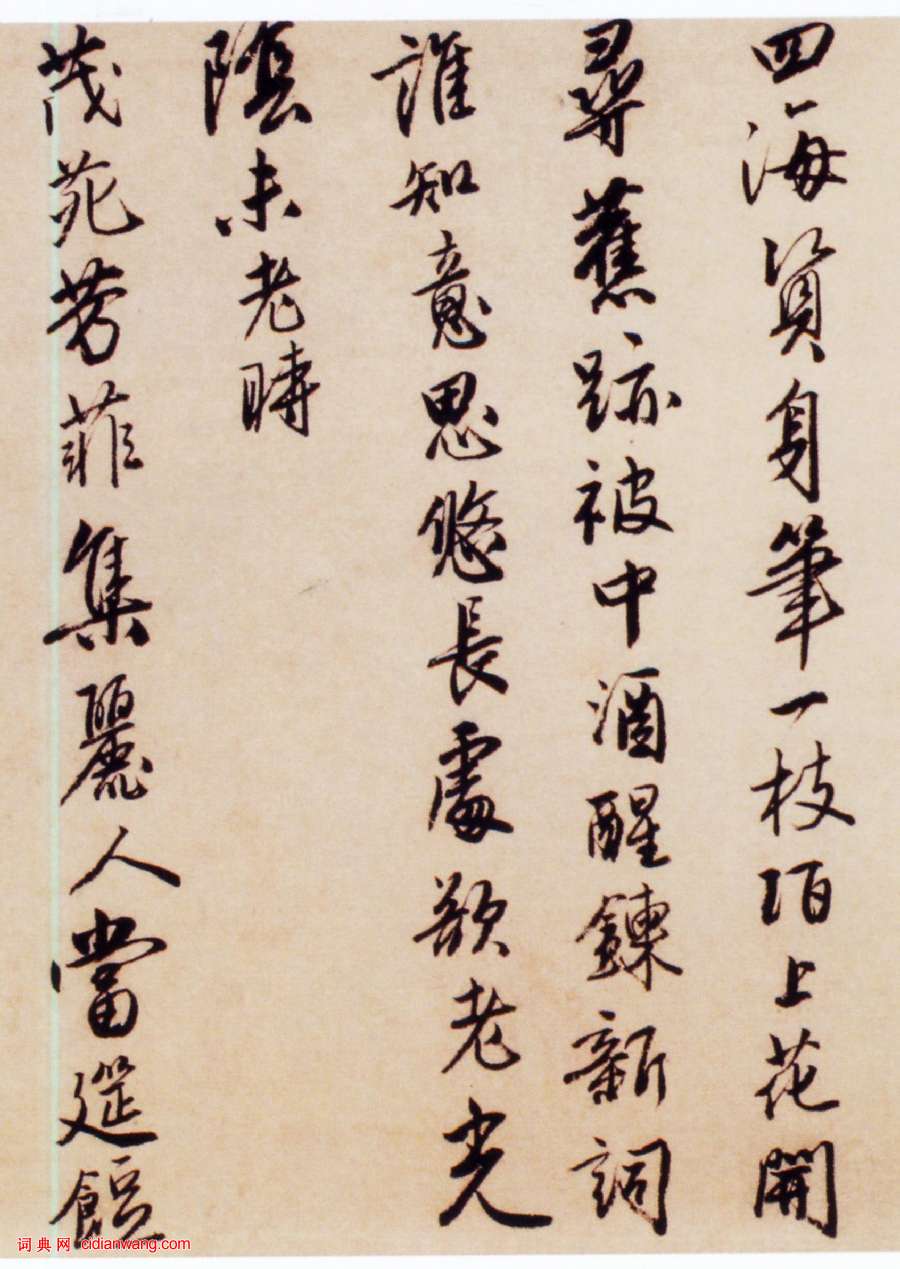 四海資身筆一枝陌上花開
尋舊跡被中酒醒鍊新詞
誰知意思悠長處欲老光
陰未老時
茂苑芳菲集麗人當筵餖
词典网 cidianwang.com